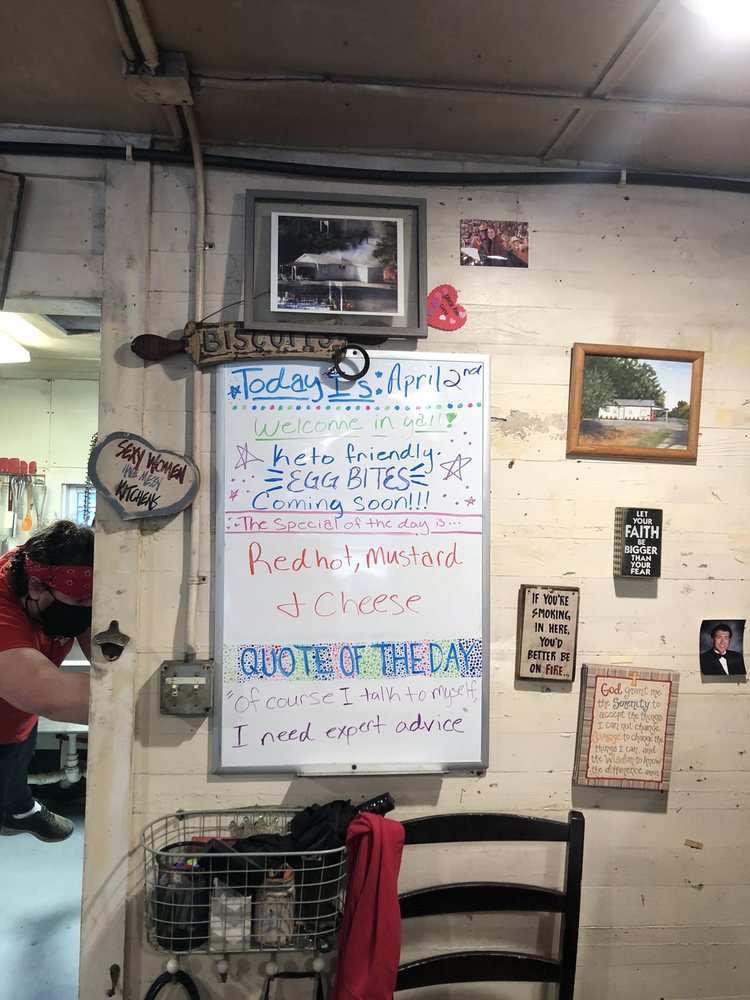 BISCUITS
Today Is: April 2nd
Welcome in yall!
Keto friendly
EGG BITES
Coming Soon!!!
The Special of the day is...
Redhot, Mustard
& Cheese
QUOTE OF THE DAY
"Of course I talk to myself,
I need expert advice"
SEXY WOMEN
HAVE MESSY
KITCHENS
LET
YOUR
FAITH
BE
BIGGER
THAN YOUR
FEAR
IF YOU'RE
SMOKING
IN HERE,
YOU'D
BETTER BE
ON FIRE...
GOD grant me
the Serenity to
accept the things
I can not change,
Courage to change the
things I can, and
the Wisdom to know
the difference. amen